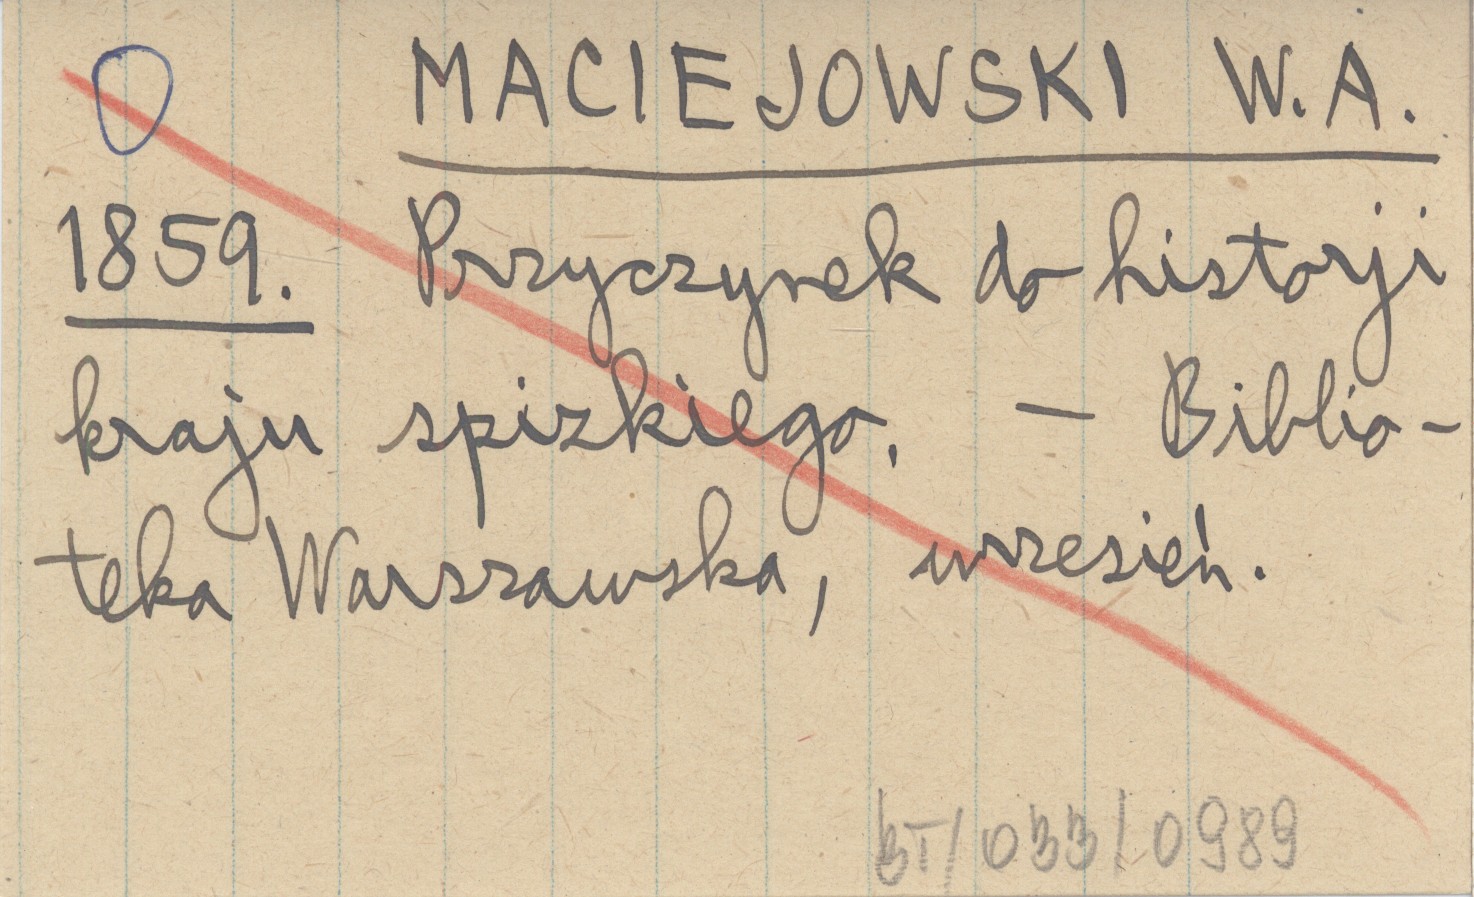 MACIEJOWSKI W.A.
1859. Przyczynek do historji
kraju spizkiego. — Biblio-
teka Warszawska, wrzesień.
BT/033/0989